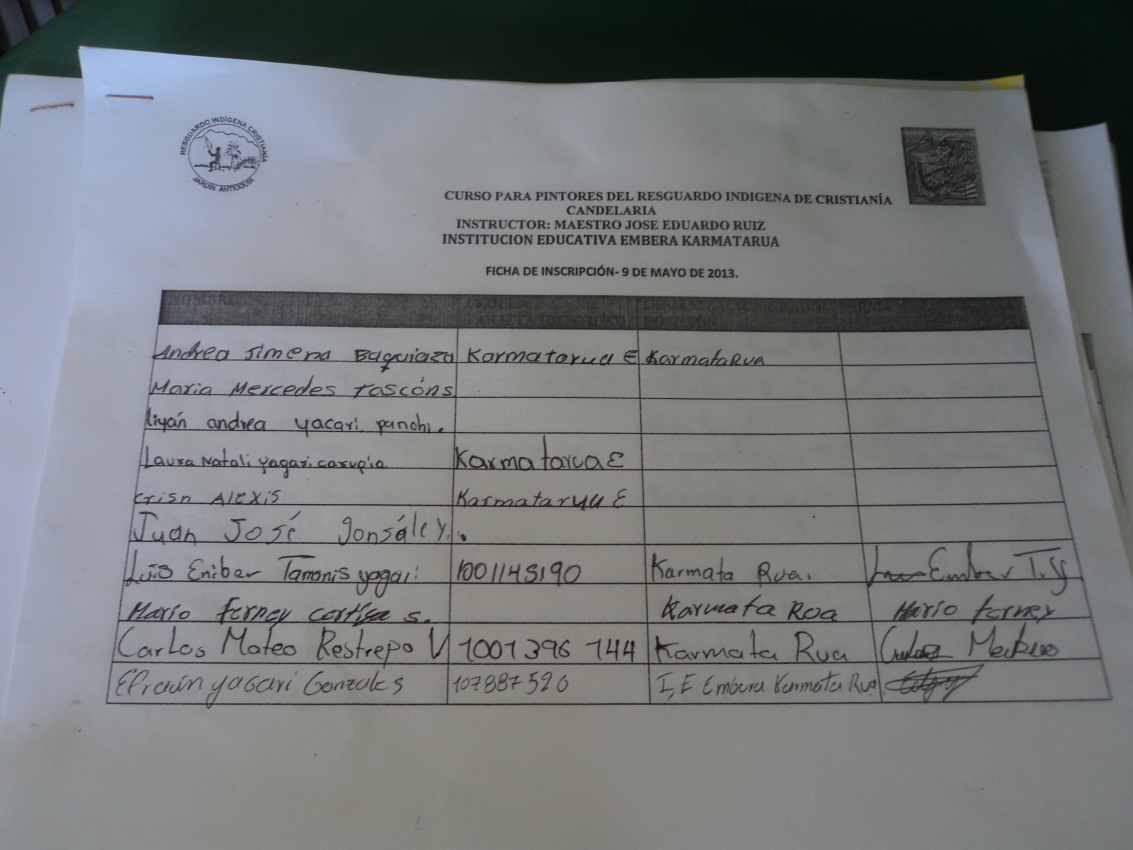 RESGUARDO INDIGENA CRISTIANÍA
JARDIN ANTIOQUIA
CURSO PARA PINTORES DEL RESGUARDO INDIGENA DE CRISTIANÍA
CANDELARIA
INSTRUCTOR: MAESTRO JOSE EDUARDO RUIZ
INSTITUCION EDUCATIVA EMBERA KARMATARUA
FICHA DE INSCRIPCIÓN- 9 DE MAYO DE 2013.
Andrea Jimena Baquiaza Karmatarua E KarmataRua
Maria Mercedes Tascóns
liyán andrea yacari panchi.
Laura Natali yagari carupia Karmatarua E
crisn Alexis Karmatarua E
Juan José gonsáley.
Luis Eniber Tamanis yagari 1001145190 Karmata Rua. Ember T.Y
Mario ferney s. Karmata Roa Mario ferney
Carlos Mateo Restrepo V 1001396 144 Karmata Rua
Efraín yagari Gonzales 107887520 I,E Embera Karmata Rua